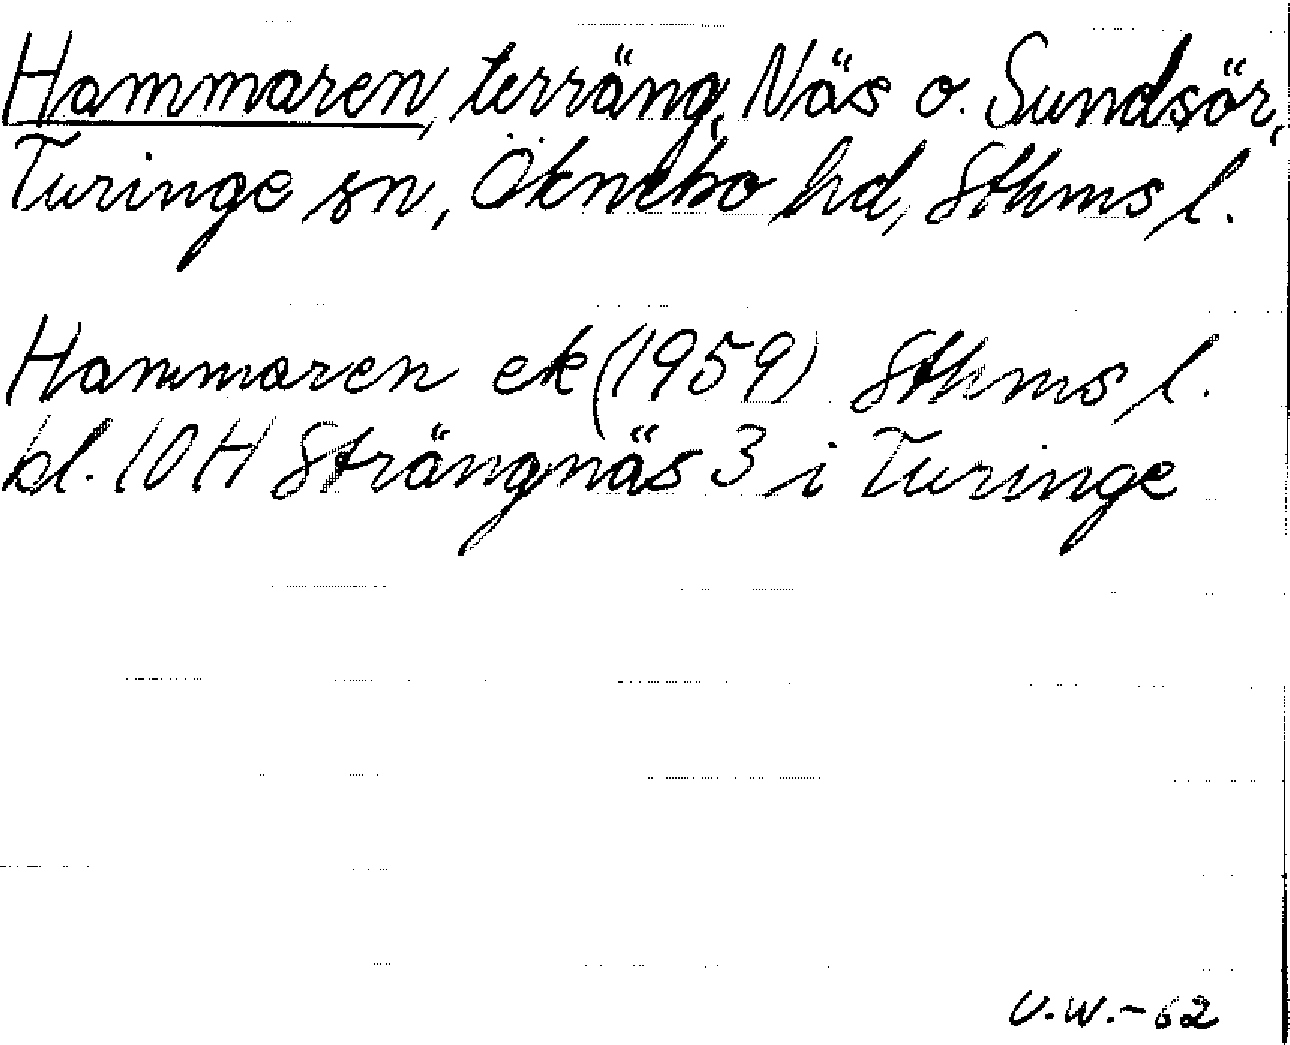 Hammaren, terräng, Näs o. Sundsör,
Turinge sn, Öknebo hd, Sthms l.
Hammaren ek (1959) Sthms l.
bl. 10H Strängnäs 3 i Turinge
U.W.-62